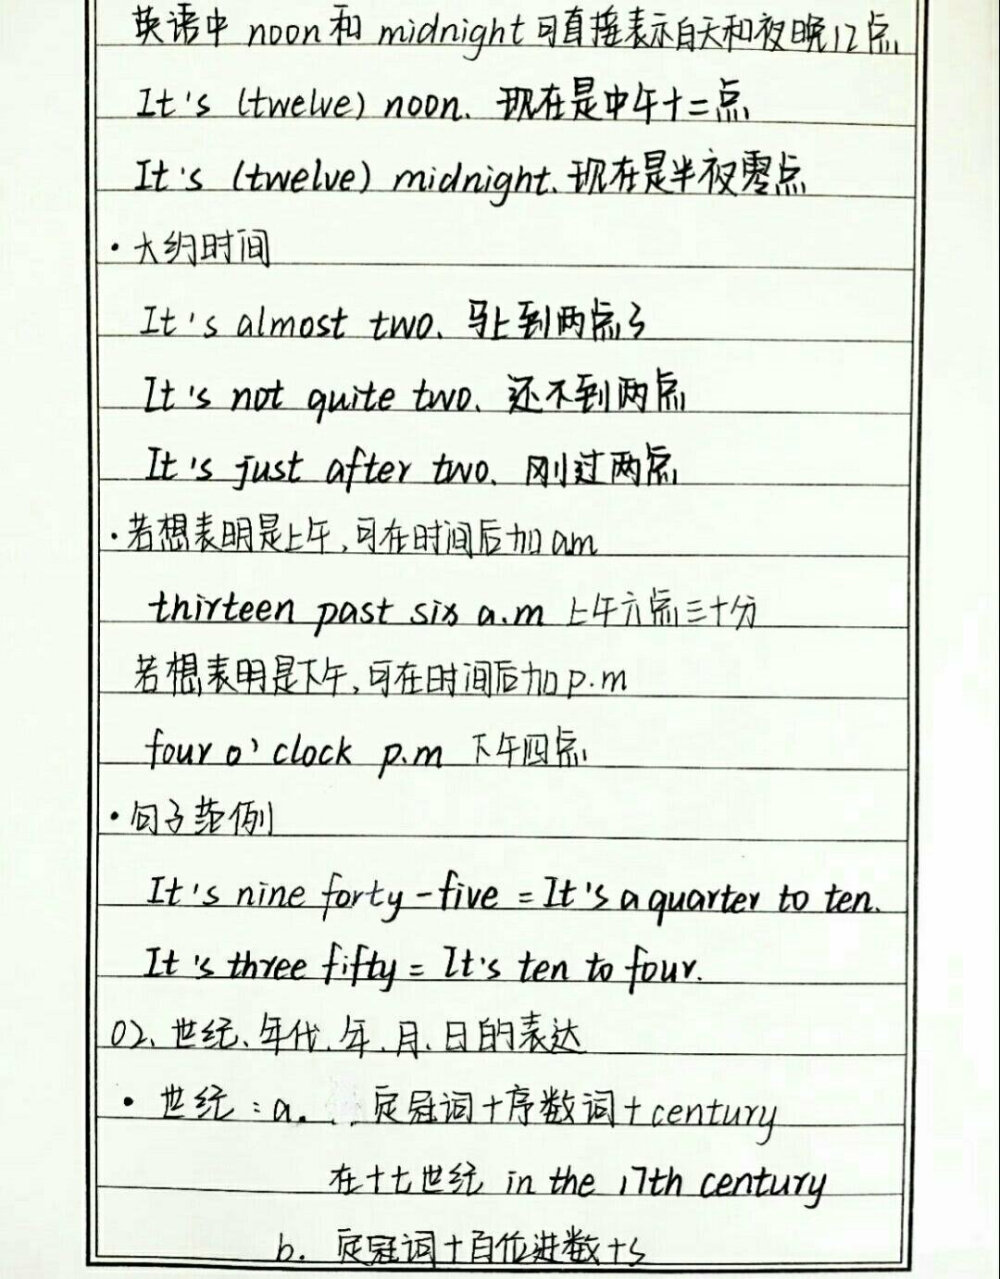 英语中 noon 和 midnight 可直接表示白天和夜晚12点
It's (twelve) noon. 现在是中午十二点
It's (twelve) midnight. 现在是半夜零点
·大约时间
It's almost two. 马上到两点了
It's not quite two. 还不到两点
It's just after two. 刚过两点
·若想表明是上午,可在时间后加 am
thirteen past six a.m 上午六点三十分
若想表明是下午,可在时间后加 p.m
four o'clock p.m 下午四点
·句子范例
It's nine forty-five = It's a quarter to ten.
It's three fifty = It's ten to four.
02、世纪、年代、年、月、日的表达
·世纪:a. 定冠词+序数词+century
在十七世纪 in the 17th century
b. 定冠词+百位进数+s